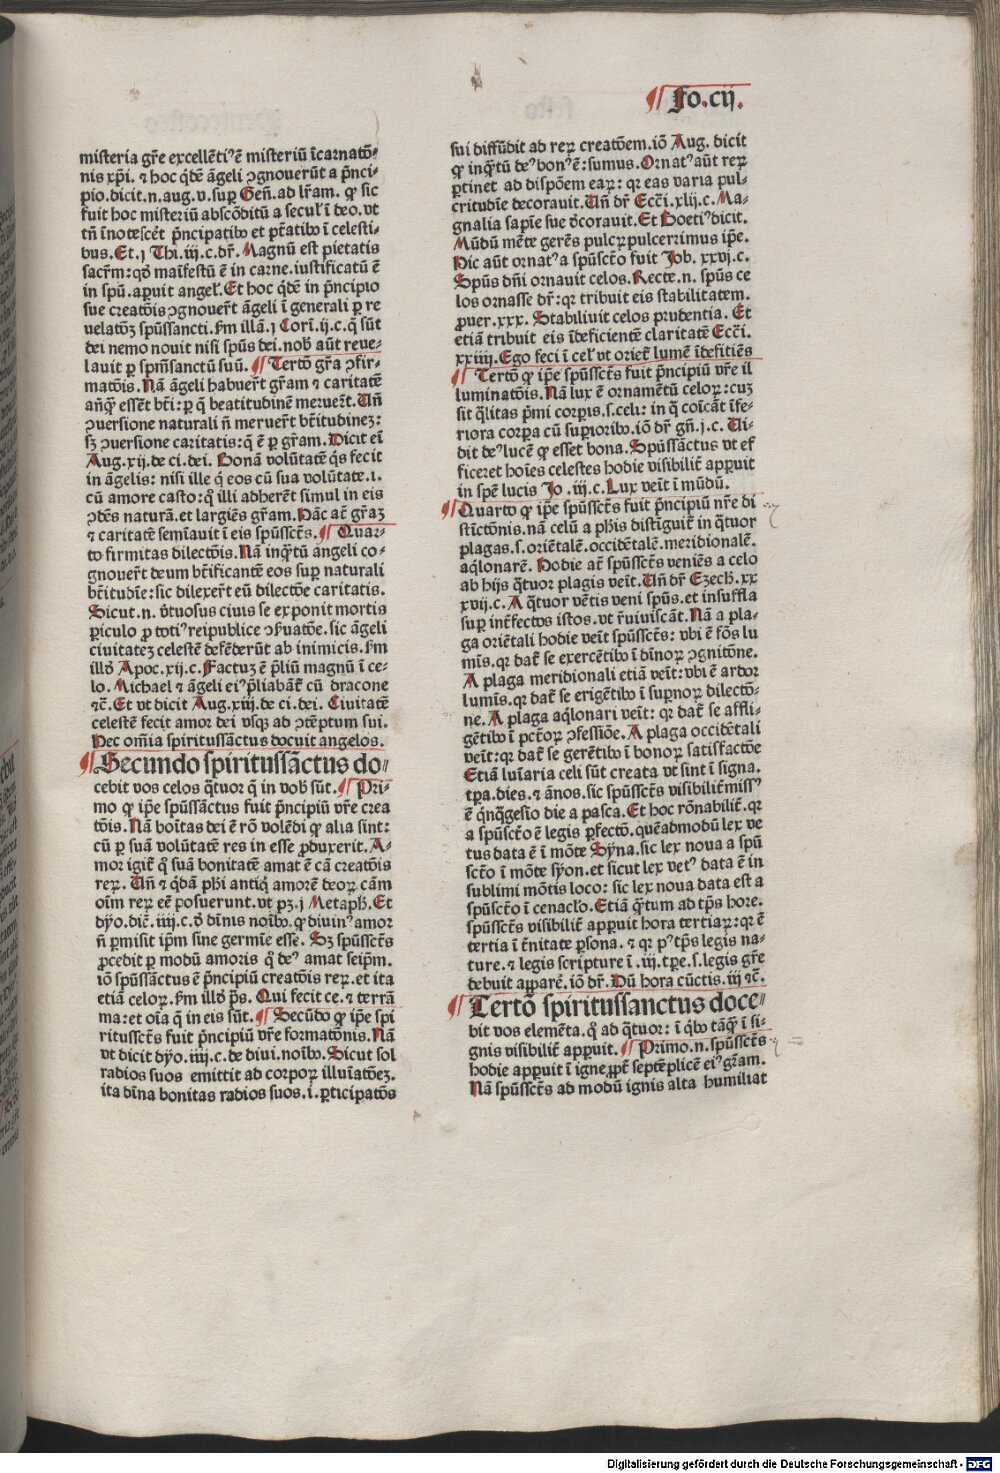 ¶ Fo.cij.
misteria gr̄e excellēti⁹ ē misteriū īcarnatō-
nis xp̄i. ⁊ hoc qd̄ē āgeli ꝯgnouerūt a p̄nci-
pio.dicit.n.aug.v.sup Gen̄.ad lr̄am. ꝙ sic
fuit hoc misteriū abscōditū a secul' ī deo.vt
tn̄ īnotescēt p̄ncipatibꝰ et ptātibꝰ ī celesti-
bus.Et.j Thi.iij.c.dr̄. Magnū est pietatis
sacrm̄: qd̄ maīfestū ē in carne.iustificatū ē
in spū. apuit angel'.Et hoc qd̄ē in p̄ncipio
sue creatōis ꝯgnouer̄t āgeli ī generali ꝑ re
uelatōꝫ spūssancti. ẜm illā.j Corī.ij.c.q̄ sūt
dei nemo nouit nisi spūs dei.nob̄ aūt reue-
lauit ꝑ spm̄sanctū suū. ¶ Tertō gr̄a ꝯfir-
matōis. Nā āgeli habuer̄t gr̄am ⁊ caritatē
an̄q̄ essēt bt̄i: ꝑ q̄ beatitudinē meruer̄t. Un̄
ꝯuersione naturali n̄ meruer̄t bt̄itudineꝫ:
sꝫ ꝯuersione caritatis: q̄ ē ꝑ gr̄am. Dicit eī
Aug.xij.de ci.dei. Bonā volūtatē q̄s fecit
in āgelis: nisi ille q̄ eos cū sua volūtate.ı.
cū amore casto: q̄ illi adherēt simul in eis
ꝯdēs naturā.et largiēs gr̄am. Hāc at̄ gr̄aꝫ
⁊ caritatē semīauit ī eis spūssct̄s. ¶ Quar-
to firmitas dilectōis. Nā inq̄tū angeli co-
gnouer̄t deum bt̄ificantē eos sup naturali
bt̄itudīe: sic dilexer̄t eū dilectōe caritatis.
Sicut.n. v̄tuosus ciuis se exponit mortis
ꝑiculo ꝓ toti⁹ reipublice ꝯẜuatōe. sic āgeli
ciuitateꝫ celestē defēderūt ab inimicis. ẜm
illd̄ Apoc.xij.c. Factuꝫ ē p̄liū magnū ī ce-
lo. Michael ⁊ āgeli ei⁹ p̄liabāt̄ cū dracone
⁊c̄. Et vt dicit Aug.xiij.de ci.dei. Ciuitatē
celestē fecit amor dei vsqꝫ ad ꝯtēptum sui.
Hec om̄ia spiritussāctus docuit angelos.
¶ Secundo spiritussāctus do-
cebit vos celos q̄tuor q̄ in vob̄ sūt. ¶ Pri-
mo ꝙ ip̄e spūssāctus fuit p̄ncipiū vr̄e crea
tōis. Nā boītas dei ē rō volēdi ꝙ alia sint:
cū ꝑ suā volūtatē res in esse ꝓduxerit. A-
mor igit̄ q̄ suā bonitatē amat ē cā creatōis
reꝝ. Un̄ ⁊ q̄dā ph̄i antiq̄ amorē deoꝝ cām
oīm reꝝ eē posuerunt. vt pꝫ.j Metaph̄. Et
dyo. dic̄. iiij.c.d̄ dīnis noībꝰ. ꝙ diuin⁹ amor
n̄ ꝑmisit ip̄m sine germīe esse. Sꝫ spūssct̄s
ꝓcedit ꝑ modū amoris q̄ de⁹ amat seip̄m.
iō spūssāctus ē p̄ncipiū creatōis reꝝ. et ita
etiā celoꝝ. ẜm illd̄ ps̄. Qui fecit ce. ⁊ terrā
ma: et oīa q̄ in eis sūt. ¶ Secūdo ꝙ ip̄e spi
ritussct̄s fuit p̄ncipiū vr̄e formatōnis. Nā
vt dicit dyo. iiij.c.de diui.noībꝰ. Sicut sol
radios suos emittit ad corpoꝝ illuīatōeꝫ.
ita dīna bonitas radios suos. i. ꝑticipatōs
sui diffūdit ad reꝝ creatōem. iō Aug. dicit
ꝙ inq̄tū de⁹ bon⁹ ē: sumus. Ornat⁹ aūt reꝝ
ꝑtinet ad dispōem eaꝝ: qꝛ eas varia pul-
critudīe decorauit. Un̄ dr̄ Ecc̄i.xlij.c. Ma-
gnalia sapīe sue d̄corauit. Et Boeti⁹ dicit.
Mūdū mēte gerēs pulcꝝ pulcerrimus ip̄e.
Hic aūt ornat⁹ a spūsct̄o fuit Job. xxvj.c.
Spūs dn̄i ornauit celos. Recte.n. spūs ce
los ornasse dr̄: qꝛ tribuit eis stabilitatem.
ꝓuer.xxx. Stabiliuit celos prudentia. Et
etiā tribuit eis īdeficientē claritatē Ecc̄i.
xxiiij. Ego feci ī cel' vt oriet̄ lumē īdefitiēs
¶ Tertō ꝙ ip̄e spūssct̄s fuit p̄ncipiū vr̄e il
luminatōis. Nā lux ē ornamētū celoꝝ: cuꝫ
sit q̄litas pm̄i corpis.s.celi: in q̄ coīcāt īfe-
riora corpa cū supioribꝰ. iō dr̄ gn̄.j.c. Ui-
dit de⁹ lucē ꝙ esset bona. Spūssāctus vt ef
ficeret hoīes celestes hodie visibilit̄ appuit
in spē lucis Jo .iij.c. Lux veīt ī mūdū.
¶ Quarto ꝙ ip̄e spūssct̄s fuit p̄ncipiū nr̄e di
stīctōnis. nā celū a ph̄is distīguit̄ in q̄tuor
plagas.s. oriētalē. occidētalē. meridionalē.
aq̄lonarē. Hodie at̄ spūssct̄s veniēs a celo
ab hijs q̄tuor plagis veīt. Un̄ dr̄ Ezech̄. xx
xvij.c. A q̄tuor vētis veni spūs. et insuffla
sup int̄fectos istos. vt r̄uiuiscāt. Nā a pla-
ga oriētali hodie veīt spūssct̄s: vbi ē fōs lu
mīs. qꝛ dat̄ se exercētibꝰ ī dīnoꝝ ꝯgnitōne.
A plaga meridionali etiā veīt: vbi ē ardor
lumīs. qꝛ dat̄ se erigētibꝰ ī supnoꝝ dilectō-
ne. A plaga aq̄lonari veīt: qꝛ dat̄ se affli-
gētibꝰ ī pct̄oꝝ ꝯfessiōe. A plaga occidētali
veīt: qꝛ dat̄ se gerētibꝰ ī bonoꝝ satisfactōe
Etiā luīaria celi sūt creata vt sint ī signa.
tꝑa.dies. ⁊ ānos. sic spūssct̄s visibilit̄ miss⁹
ē q̄nq̄gesio die a pasca. Et hoc rōnabilit̄. qꝛ
a spūsct̄o ē legis ꝑfectō. quēadmodū lex ve
tus data ē ī mōte Syna. sic lex noua a spū
sct̄o ī mōte syon. et sicut lex vet⁹ data ē in
sublimi mōtis loco: sic lex noua data est a
spūsct̄o ī cenaclo. Etiā q̄tum ad tp̄s hore.
spūssct̄s visibilit̄ appuit hora tertiaꝝ: qꝛ ē
tertia ī t̄nitate ꝑsona. ⁊ qꝛ p⁹ tp̄s legis na-
ture. ⁊ legis scripture ī .iij. tꝑe.s. legis gr̄e
debuit apparē. iō dr̄. Dū hora cūctis. iij ⁊c̄.
¶ Tertō spiritussanctus doce-
bit vos elemēta. q̄ ad q̄tuor: ī q̄bꝰ tāq̄ ī si-
gnis visibilit̄ appuit. ¶ Primo.n. spūssct̄s
hodie appuit ī igne ꝓpt̄ septēplicē ei⁹ gr̄am.
Nā spūssct̄s ad modū ignis alta humiliat
Digitalisierung gefördert durch die Deutsche Forschungsgemeinschaft - DFG